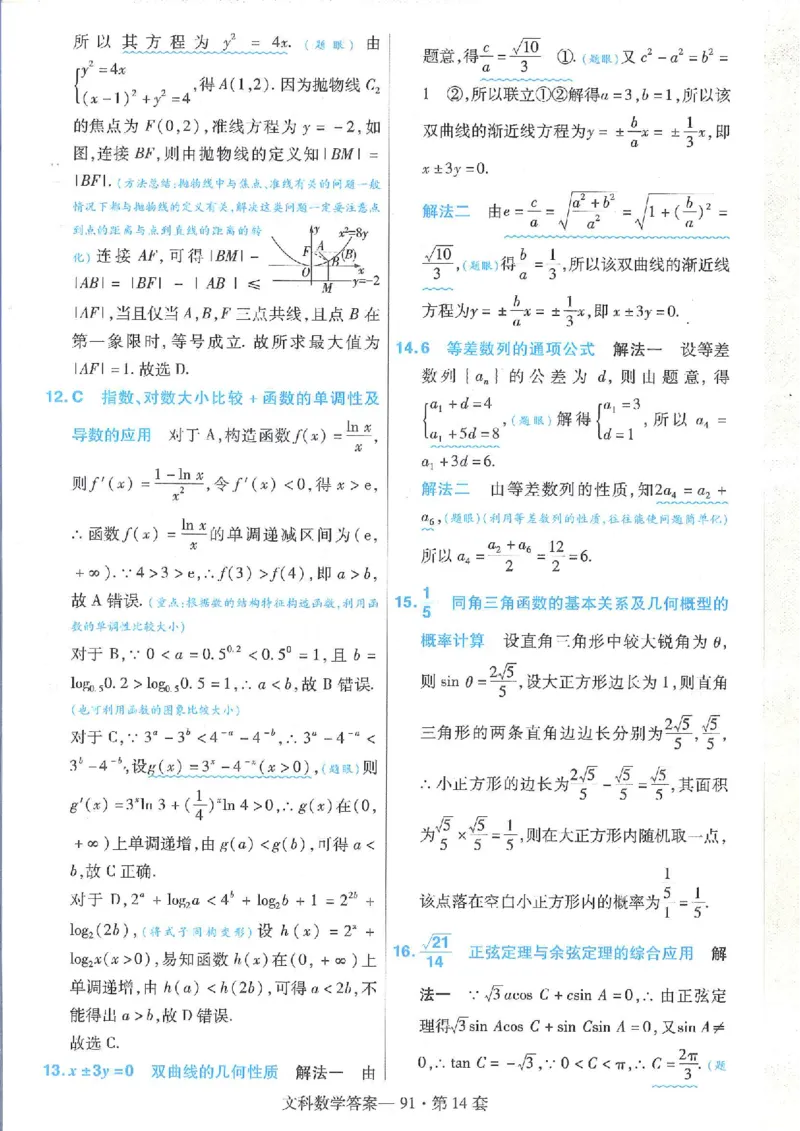 所以其方程为 y² = 4x. (题眼) 由
{y²=4x
(x-1)²+y²=4 ,得A(1,2). 因为抛物线 C₂
的焦点为 F(0,2),准线方程为 y = -2,如
图,连接 BF,则由抛物线的定义知|BM| =
|BF|. (方法总结:抛物线中与焦点、准线有关的问题一般
情况下都与抛物线的定义有关,解决这类问题一定要注意点
到点的距离与点到直线的距离的转
化) 连接 AF,可得|BM| -
|AB| = |BF| - |AB| ≤
y x²=8y
F A (B)
O B x
M y=-2
|AF|,当且仅当 A,B,F 三点共线,且点 B 在
第一象限时,等号成立. 故所求最大值为
|AF| = 1. 故选 D.
12. C 指数、对数大小比较 + 函数的单调性及
导数的应用 对于 A,构造函数 f(x) = ln x/x,
则 f′(x) = (1-ln x)/x²,令 f′(x) < 0,得 x > e,
∴ 函数 f(x) = ln x/x 的单调递减区间为(e,
+∞). ∵ 4 > 3 > e,∴ f(3) > f(4),即 a > b,
故 A 错误. (重点:根据数的结构特征构造函数,利用函
数的单调性比较大小)
对于 B,∵ 0 < a = 0.5^0.2 < 0.5⁰ = 1,且 b =
log₀.₅0.2 > log₀.₅0.5 = 1,∴ a < b,故 B 错误.
(也可利用函数的图象比较大小)
对于 C,∵ 3^a - 3^b < 4^-a - 4^-b,∴ 3^a - 4^-a <
3^b - 4^-b,设g(x) = 3^x - 4^-x(x>0),(题眼)则
g′(x) = 3^x ln 3 + (1/4)^x ln 4 > 0,∴ g(x)在(0,
+∞)上单调递增,由 g(a) < g(b),可得 a <
b,故 C 正确.
对于 D,2^a + log₂a < 4^b + log₂b + 1 = 2^2b +
log₂(2b),(将式子同构变形)设 h(x) = 2^x +
log₂x(x>0),易知函数 h(x)在(0, +∞)上
单调递增,由 h(a) < h(2b),可得 a < 2b,不
能得出 a > b,故 D 错误.
故选 C.
13. x±3y=0 双曲线的几何性质 解法一 由
题意,得 c/a = √10/3 ①. (题眼)又 c² - a² = b² =
1 ②,所以联立①②解得a=3,b=1,所以该
双曲线的渐近线方程为y = ± b/a x = ± 1/3 x,即
x±3y=0.
解法二 由e = c/a = √((a²+b²)/a²) = √(1+(b/a)²) =
√10/3,(题眼)得 b/a = 1/3,所以该双曲线的渐近线
方程为y = ± b/a x = ± 1/3 x,即 x±3y=0.
14. 6 等差数列的通项公式 解法一 设等差
数列 {aₙ} 的公差为 d, 则由题意, 得
{a₁+d=4
a₁+5d=8 ,(题眼)解得 {a₁=3
d=1 ,所以 a₄ =
a₁+3d=6.
解法二 由等差数列的性质,知2a₄ = a₂ +
a₆,(题眼)(利用等差数列的性质,往往能使问题简单化)
所以 a₄ = (a₂+a₆)/2 = 12/2 = 6.
15. 1/5 同角三角函数的基本关系及几何概型的
概率计算 设直角三角形中较大锐角为 θ,
则 sin θ = 2√5/5,设大正方形边长为 1,则直角
三角形的两条直角边边长分别为 2√5/5, √5/5,
∴ 小正方形的边长为 2√5/5 - √5/5 = √5/5,其面积
为 √5/5 × √5/5 = 1/5,则在大正方形内随机取一点,
该点落在空白小正方形内的概率为 (1/5)/1 = 1/5.
16. √21/14 正弦定理与余弦定理的综合应用 解
法一 ∵ √3acos C + csin A = 0,∴ 由正弦定
理得√3sin Acos C + sin Csin A = 0,又sin A≠
0,∴ tan C = -√3,∵ 0 < C < π,∴ C = 2π/3. (题
文科数学答案— 91 · 第 14 套